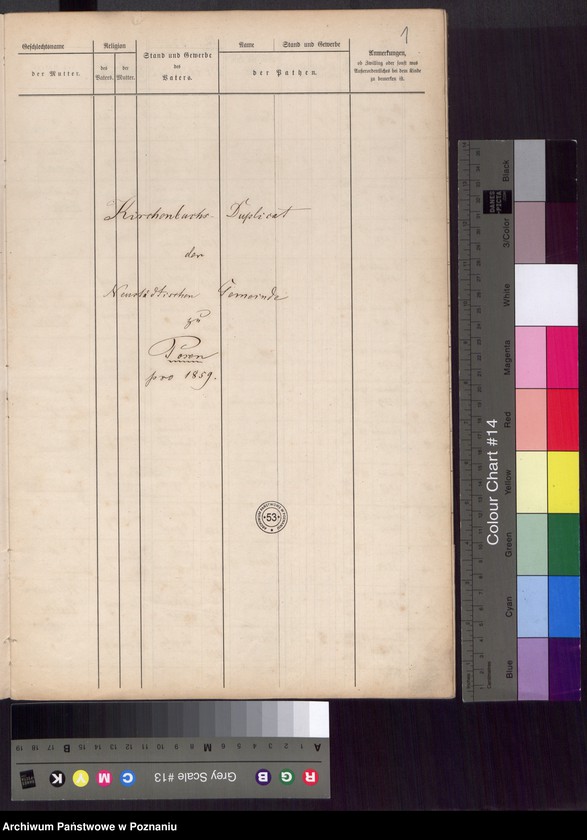 1
Geschlechtsname
der Mutter.
Religion
des Vaters.
der Mutter.
Stand und Gewerbe
des
Vaters.
Name
Stand und Gewerbe
der Pathen.
Anmerkungen,
ob Zwilling oder sonst was
Außerordentliches bei dem Kinde
zu bemerken ist.
Kirchenbuchs- Duplicat
der
Neustädtischen Gemeinde
zu
Posen
pro 1859.
53
Colour Chart #14
Black
3/Color
White
Magenta
Red
Yellow
Green
Cyan
Blue
Grey Scale #13
R G B C M Y K
A 1 2 3 4 5 6 M 8 9 10 11 12 13 14 15 B 17 18 19
Archiwum Państwowe w Poznaniu